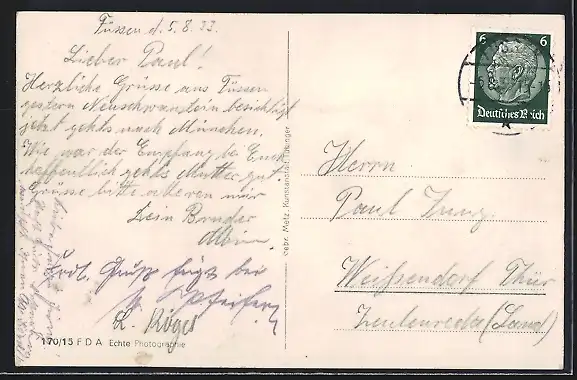 Füssen d. 5.8.33.
Lieber Paul!
Herzliche Grüsse aus Füssen
gestern Neuschwanstein besichtigt
jetzt gehts nach München.
Wie war der Empfang bei Euch
hoffentlich gehts Mutter gut.
Grüsse bitte alle von mir
Dein Bruder
Albin
Frdl. Gruß fügt bei
L. Röger
170/15 F D A Echte Photographie
Gebr. Metz, Kunstanstalt, Tübingen
6 6
Deutsches Reich
Herrn
Paul Jung.
Weißendorf Thür
Zeulenroda (Land)